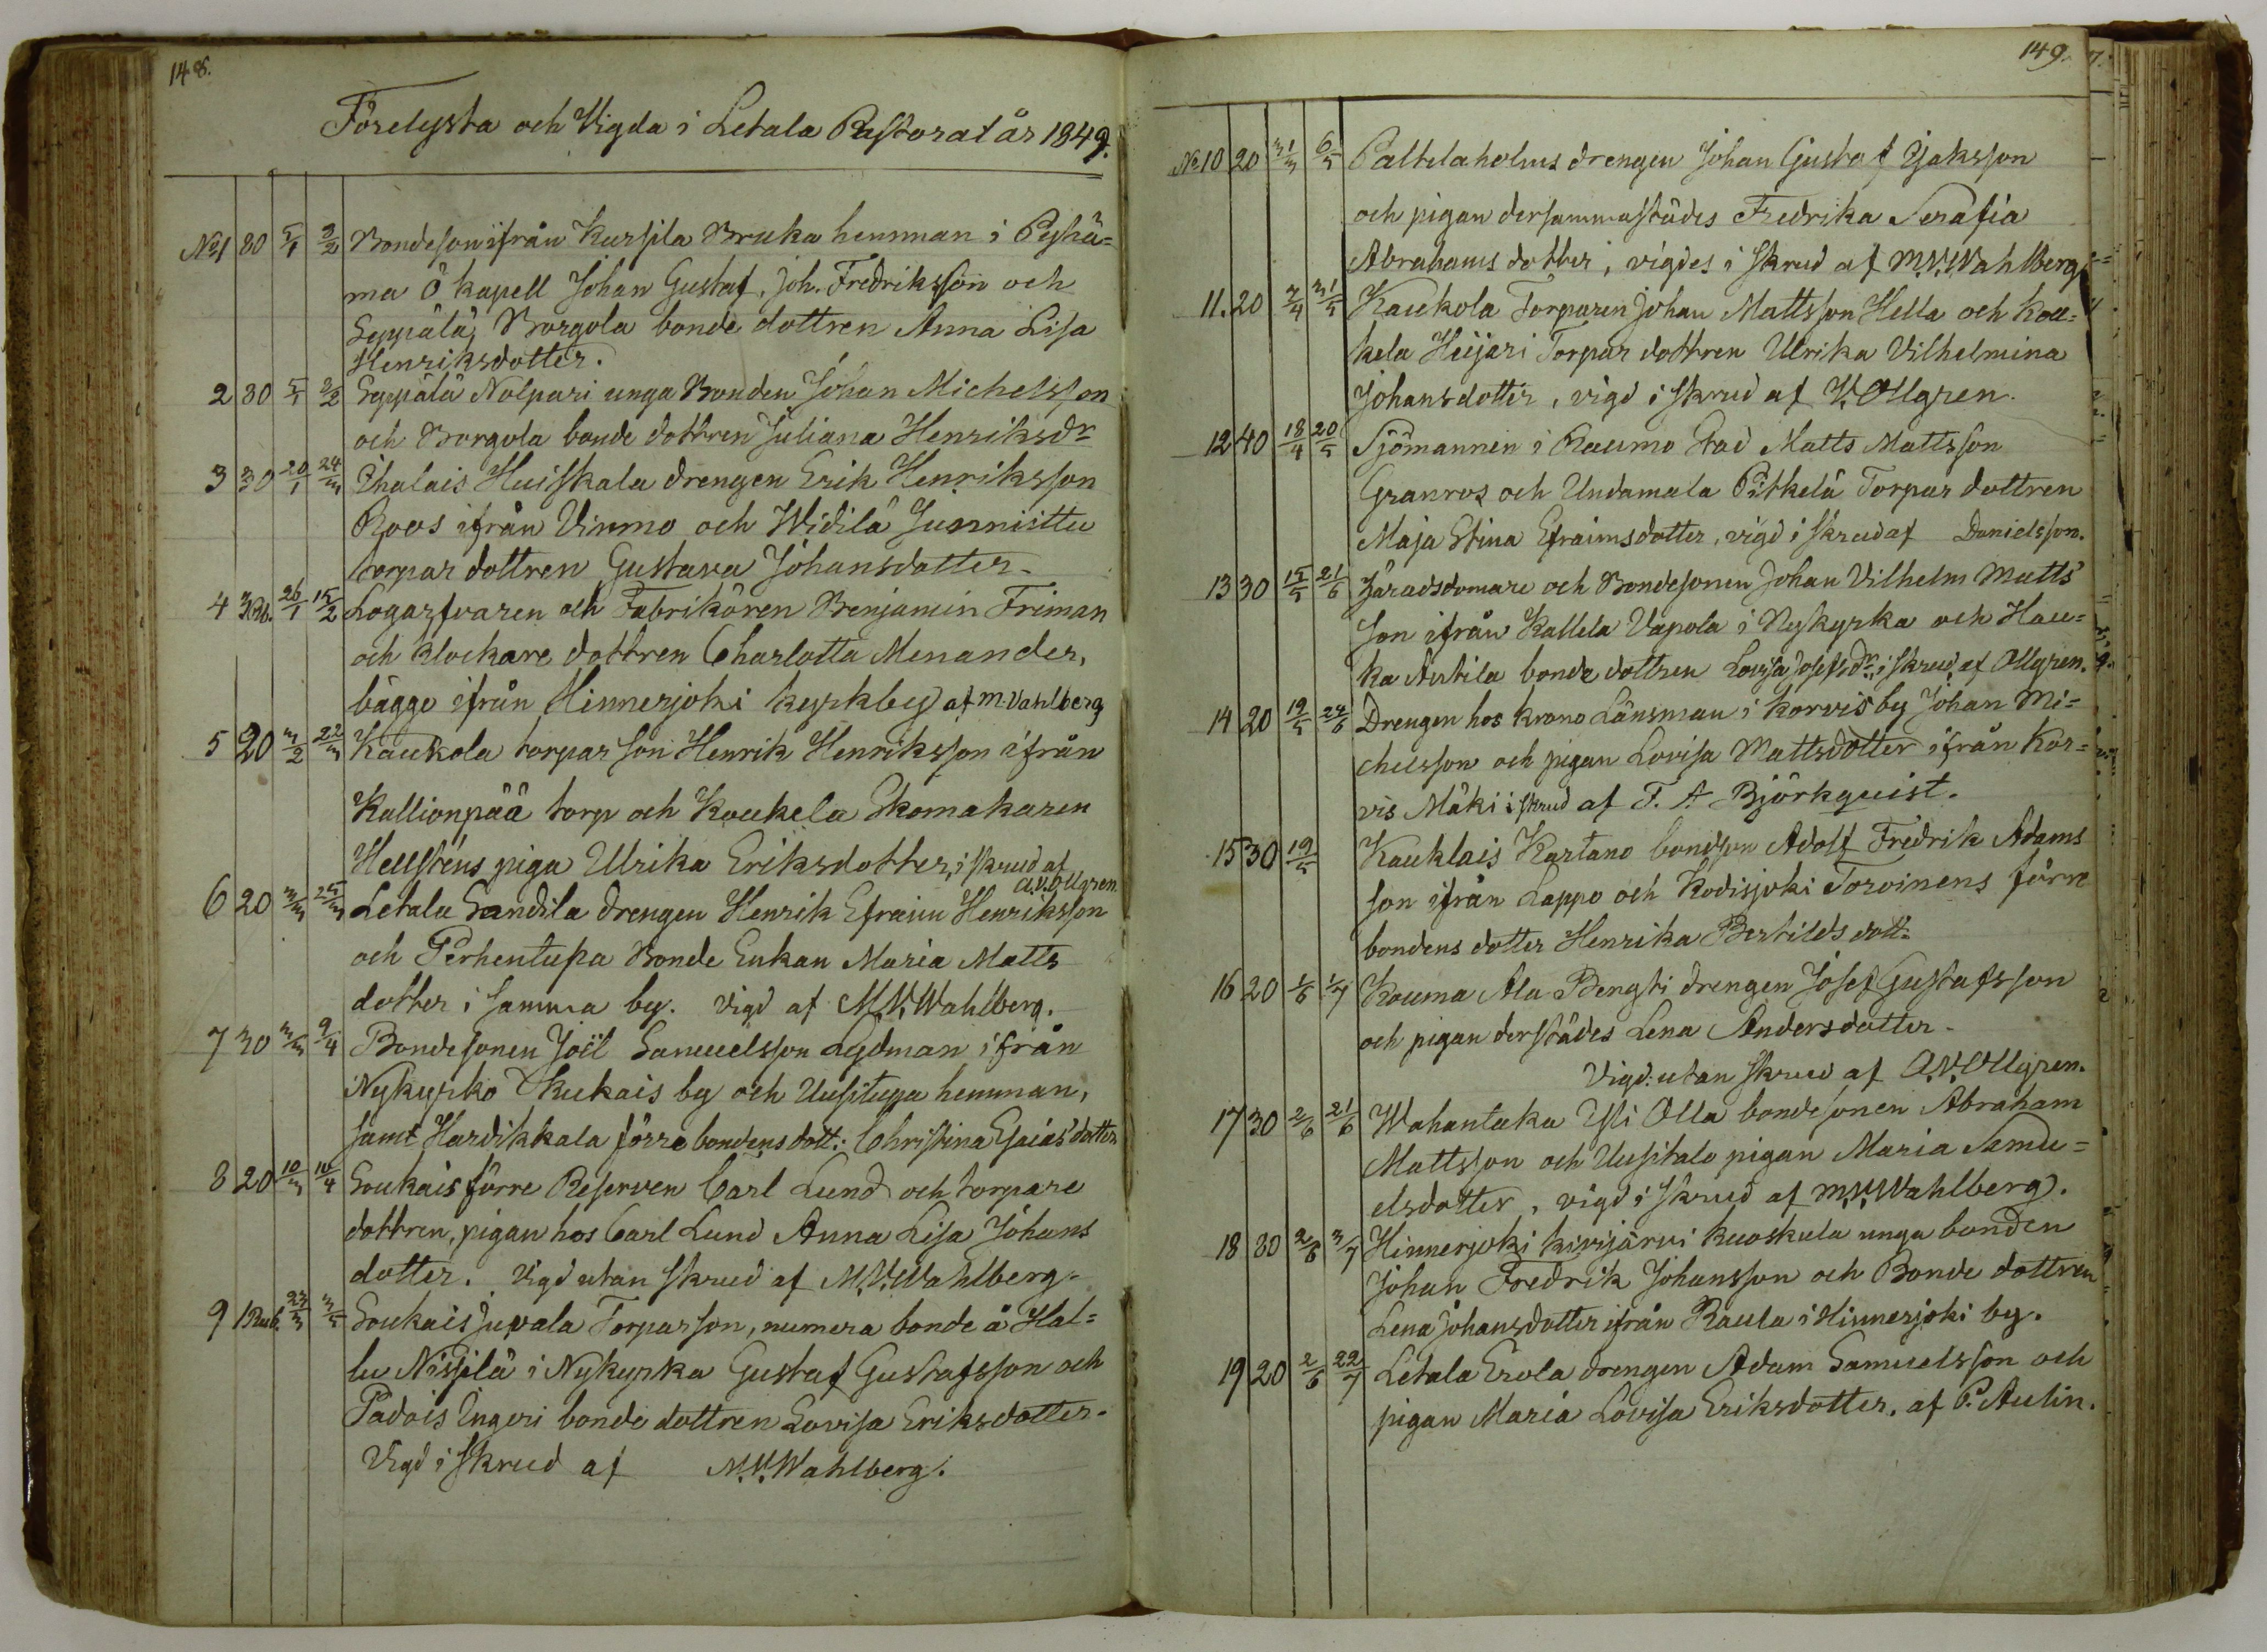 148.
Förelysta och Vigda i Letala Pastorat år 1849.
No 1 30 5/1 2/2 Bondeson ifrån Kursila Bruka hemman i Pyhä=
ma Ö kapell Johan Gustaf, Joh. Fredriksson och
Seppälä, Borgola bonde dottren Anna Lisa
Henriksdotter.
2 30 5/1 2/2 Seppälä Nolpari unga Bonden Johan Michelsson
och Borgola bonde dottren Juliana Henriksdr
3 30 20/1 24/3 Ihalais Huiskala drengen Erik Henriksson
Roos ifrån Vinmo och Widilä Junnisttu
torpar dottren Gustava Johansdotter.
4 3 Rb. 26/1 15/2 Logarfvaren och Fabrikören Benjamin Friman
och klockare dottren Charlotta Menander,
bägge ifrån Hinnerjoki kyrkby af M. Vahlberg
5 20 3/2 22/3 Kaukola torpar son Henrik Henriksson ifrån
Kallionpää torp och Koukela Skomakaren
Hellsténs piga Ulrika Eriksdotter, i skrud af
A.V. Ollgren.
6 20 3/3 25/3 Letala Sandila drengen Henrik Efraim Henriksson
och Perhentupa Bonde Enkan Maria Matts
dotter i samma by. vigd af M.V. Wahlberg.
7 30 3/3 9/4 Bondesonen Joël Samuelsson Lydman ifrån
Nykyrko Kukais by och Uusitupa hemman,
samt Hardikkala förre bondens dott: Christina Esaias'dotter
8 20 10/3 10/4 Soukais förre Reserven Carl Lund och torpare
dottren, pigan hos Carl Lund Anna Lisa Johans
dotter. Vigd utan skrud af M.V. Wahlberg.
9 1 Rub. 23/3 3/5 Soukais Juvala Torparson, numera bonde å Hal=
lu Nissilä i Nykyrka Gustaf Gustafsson och
Padois Ingeri bonde dottren Lovisa Eriksdotter.
Vigd i skrud af M.V. Wahlberg.
149.
No 10 20 31/3 6/5 Paltilaholms drengen Johan Gustaf Isaksson
och pigan dersammastädes Fredrika Serafia
Abrahams dotter, vigdes i skrud af M.V. Wahlberg
11. 20 7/4 31/5 Kaukola Torparen Johan Mattsson Hella och Kou=
kela Heijari Torpar dottren Ulrika Vilhelmina
Johansdotter, vigd i skrud af V. Ollgren.
12 40 18/4 20/5 Sjömannen i Raumo Stad Matts Mattsson
Granros och Undamala Pitkelä Torpar dottren
Maja Stina Efraimsdotter, vigd i skrud af Danielsson.
13 30 15/5 21/6 Häradsdomare och Bondesonen Johan Vilhelm Matts
son ifrån Kallela Vapola i Nykyrka och Hau=
ka Antila bonde dottren Lovisa Josefsdr, i skrud af Ollgren.
14 20 19/5 24/6 Drengen hos krono Länsman i Korvis by Johan Mi=
chelsson och pigan Lovisa Mattsdotter ifrån Kor=
vis Mäki i skrud af F. A Björkquist.
15 30 19/5 Kauklais Kartano bondson Adolf Fredrik Adams
son ifrån Lappo och Kodisjoki Torvinens förre
bondens dotter Henrika Bertilds dott.
16 20 1/6 1/7 Kouma Ala Bengti drengen Josef Gustafsson
och pigan derstädes Lena Andersdotter.
Vigd: utan skrud af A.V. Ollgren.
17 30 2/6 21/6 Wahantaka Yli Olla bondesonen Abraham
Mattsson och Uusitalo pigan Maria Samu=
elsdotter, vigd i skrud af M.V. Wahlberg.
18 30 2/6 3/7 Hinnerjoki Kivijärvi Kuoskula unga bonden
Johan Fredrik Johansson och Bonde dottren
Lena Johansdotter ifrån Raula i Hinnerjoki by.
19 20 2/6 22/7 Letala Erola drengen Adam Samuelsson och
pigan Maria Lovisa Eriksdotter. af P. Aulin.